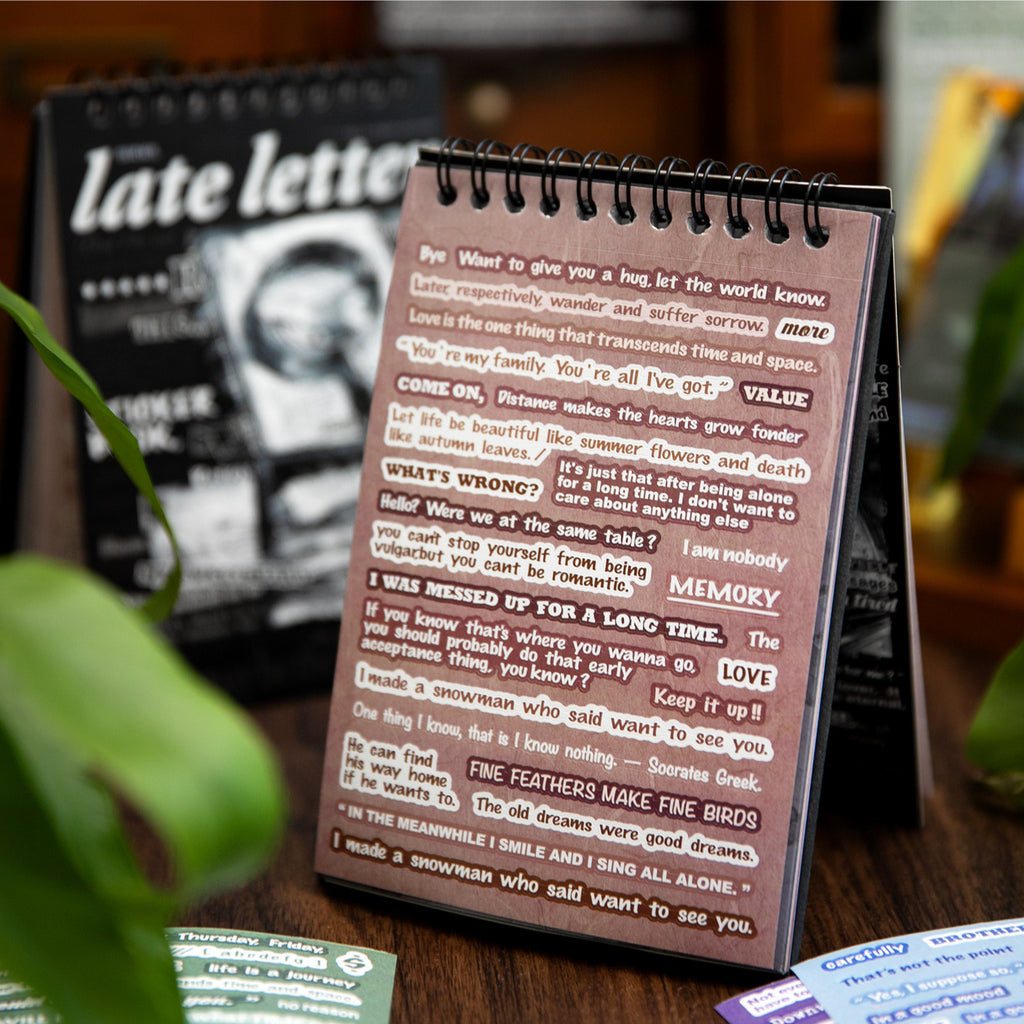 late letter
Bye Want to give you a hug, let the world know.
Later, respectively, wander and suffer sorrow. more
Love is the one thing that transcends time and space.
"You're my family. You're all I've got." VALUE
COME ON, Distance makes the hearts grow fonder
Let life be beautiful like summer flowers and death
like autumn leaves. /
WHAT'S WRONG?
It's just that after being alone
for a long time. I don't want to
care about anything else
Hello? Were we at the same table?
I am nobody
you can't stop yourself from being
vulgar,but you cant be romantic.
MEMORY
I WAS MESSED UP FOR A LONG TIME.
The
If you know that's where you wanna go,
you should probably do that early
acceptance thing, you know?
LOVE
Keep it up!!
I made a snowman who said want to see you.
One thing I know, that is I know nothing. — Socrates Greek.
He can find
his way home
if he wants to.
FINE FEATHERS MAKE FINE BIRDS
The old dreams were good dreams.
"IN THE MEANWHILE I SMILE AND I SING ALL ALONE."
I made a snowman who said want to see you.
Thursday, Friday,
/ I abcdefg I
life is a journey
time and space.
no reason
carefully BROTHE
That's not the point
"Yes, I suppose so,"
in a good mood